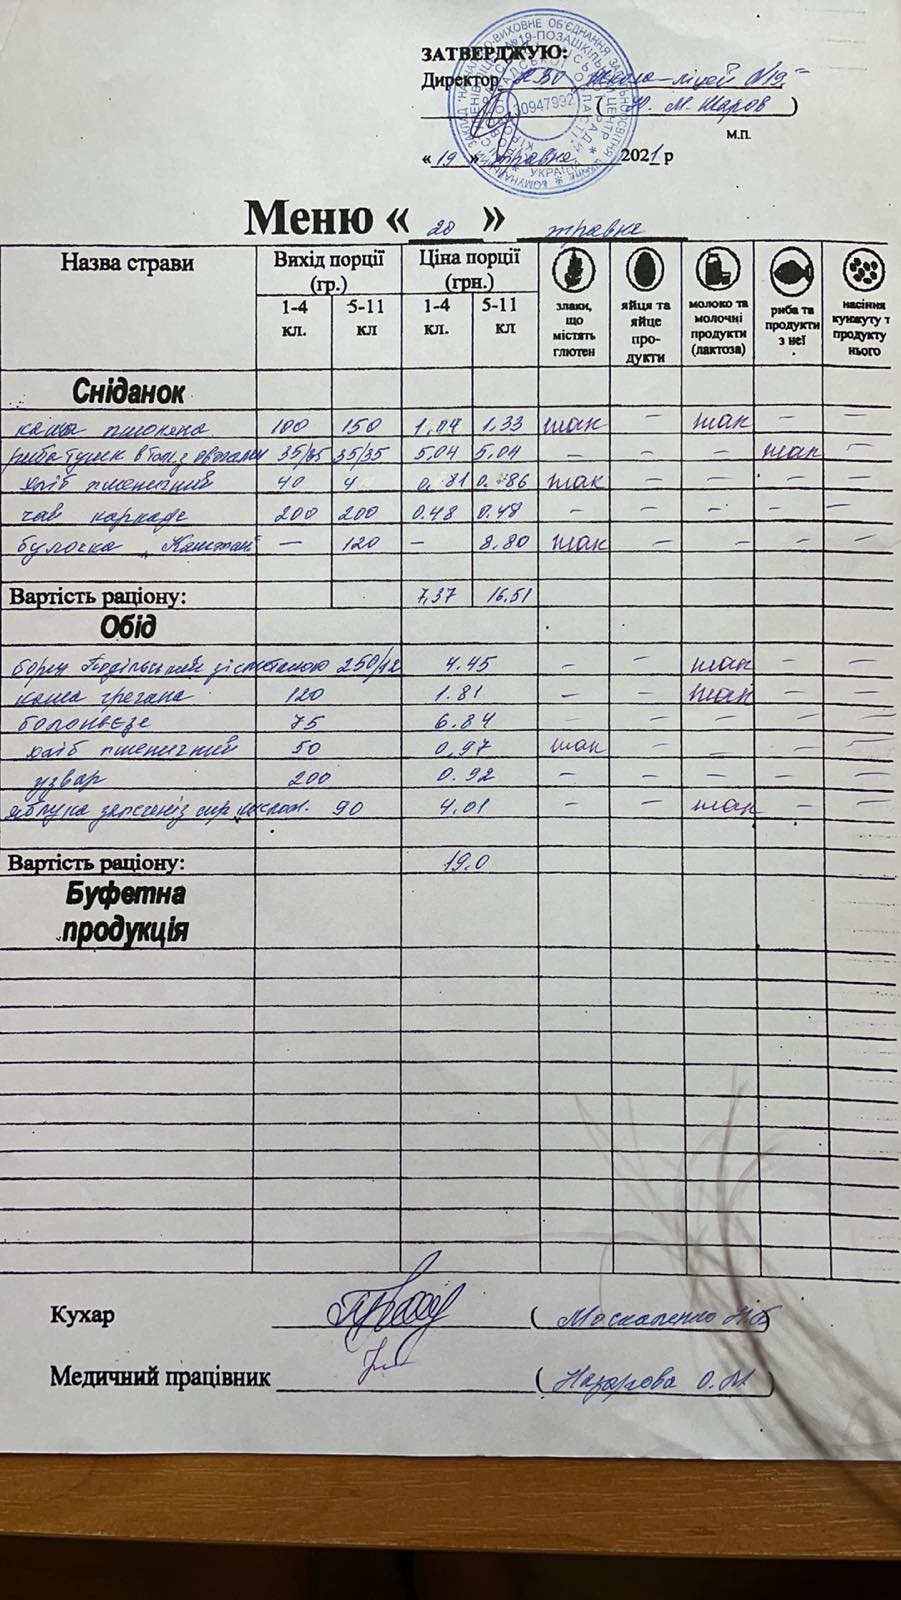 ЗАТВЕРДЖУЮ:
Директор НВО Школа-ліцей №19"
( Ю. М. Жаров )
М.П.
« 19 » травня 2021 р
30947992
Меню « 20 » травня
Назва страви Вихід порції (гр.) Ціна порції (грн.) злаки, що містять глютен яйця та яйце про- дукти молоко та молочні продукти (лактоза) риба та продукти з неї насіння кунжуту т продукту нього
1-4 кл. 5-11 кл 1-4 кл. 5-11 кл
Сніданок
каша пшоняна 100 150 1,04 1,33 так – так – –
риба тушк в том.з овочами 35/35 35/35 5,04 5,04 – – – так –
хліб пшеничний 40 0,81 0,86 так – – – –
чай каркаде 200 200 0.48 0.48 – – – – –
булочка „Каштан" – 120 – 8.80 так – – – –
Вартість раціону: 7,37 16.51
Обід
борщ Подільський зі сметаною 250/12 4.45 – – так – –
каша гречана 120 1.81 – – так – –
болоньєзе 75 6.84 – – – – –
хліб пшеничний 50 0,97 так – – – –
узвар 200 0.92 – – – – –
яблука запечені з 90 4.01 – – так – –
Вартість раціону: 19.0
Буфетна
продукція
Кухар ( Москаленко Н.В. )
Медичний працівник ( Назарова О.М )